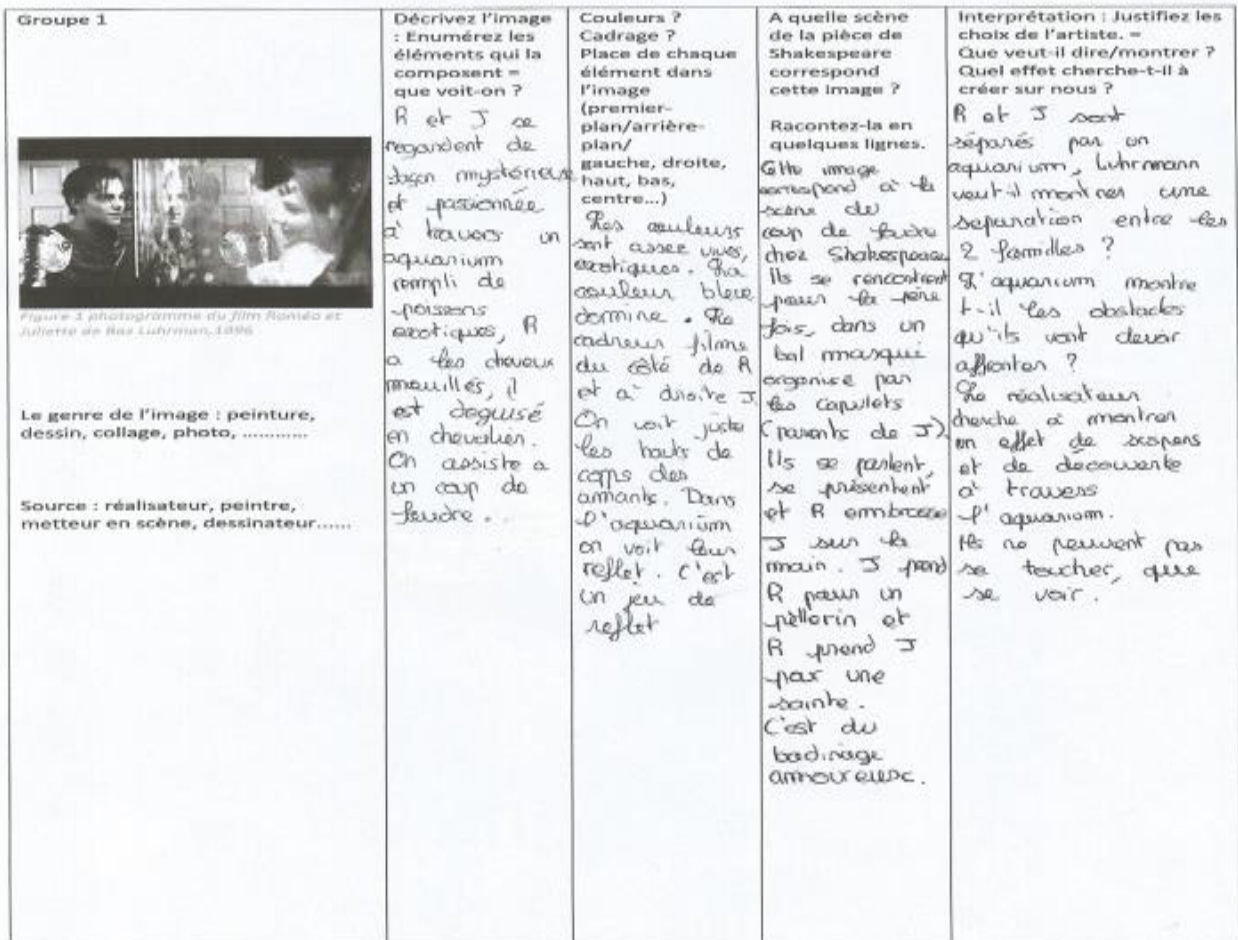 Groupe 1
Figure 1 photogramme du film Roméo et
Juliette de Baz Luhrman,1996
Le genre de l'image : peinture,
dessin, collage, photo, ............
Source : réalisateur, peintre,
metteur en scène, dessinateur......
Décrivez l'image
: Enumérez les
éléments qui la
composent =
que voit-on ?
R et J se
regardent de
façon mystérieuse
et passionnée
à travers un
aquarium
rempli de
poissons
exotiques, R
a les cheveux
mouillés, il
est deguisé
en chevalier.
On assiste a
un coup de
foudre.
Couleurs ?
Cadrage ?
Place de chaque
élément dans
l'image
(premier-
plan/arrière-
plan/
gauche, droite,
haut, bas,
centre...)
Les couleurs
sont assez vives,
exotiques. La
couleur bleue
domine. Le
cadreur filme
du côté de R
et à droite J
On voit juste
les hauts de
corps des
amants. Dans
l'aquarium
on voit leur
reflet. C'est
un jeu de
reflet
A quelle scène
de la pièce de
Shakespeare
correspond
cette image ?
Racontez-la en
quelques lignes.
Cette image
correspond à la
scène du
coup de foudre
chez Shakespeare
Ils se rencontrent
pour la 1ère
fois, dans un
bal masqué
organisé par
les Capulets
(parents de J).
Ils se parlent,
se présentent
et R embrasse
J sur la
main. J prend
R pour un
pèllerin et
R prend J
par une
sainte.
C'est du
badinage
amoureuse.
Interprétation : Justifiez les
choix de l'artiste. =
Que veut-il dire/montrer ?
Quel effet cherche-t-il à
créer sur nous ?
R et J sont
séparés par un
aquarium, Luhrmann
veut-il montrer une
separation entre les
2 familles ?
L'aquarium montre
t-il les obstacles
qu'ils vont devoir
affronter ?
Le réalisateur
cherche à montrer
un effet de suspens
et de decouverte
à travers
l'aquarium.
Ils ne peuvent pas
se toucher, que
se voir.